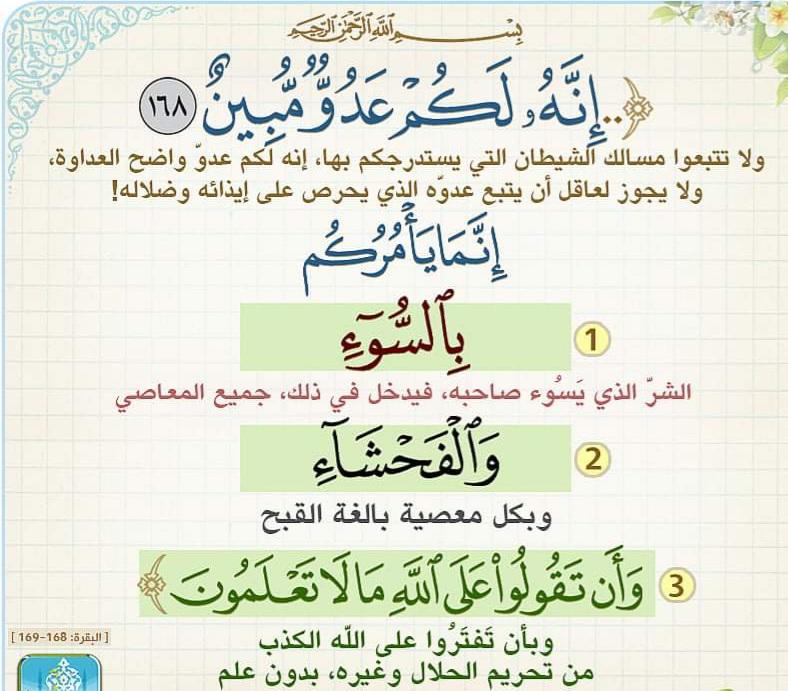 بِسْمِ اللَّهِ الرَّحْمَٰنِ الرَّحِيمِ
﴿..إِنَّهُۥ لَكُمْ عَدُوٌّ مُّبِينٌ ١٦٨
ولا تتبعوا مسالك الشيطان التي يستدرجكم بها، إنه لكم عدوّ واضح العداوة،
ولا يجوز لعاقل أن يتبع عدوّه الذي يحرص على إيذائه وضلاله!
إِنَّمَا يَأْمُرُكُم
1 بِٱلسُّوٓءِ
الشرّ الذي يَسُوء صاحبه، فيدخل في ذلك، جميع المعاصي
2 وَٱلْفَحْشَآءِ
وبكل معصية بالغة القبح
3 وَأَن تَقُولُوا۟ عَلَى ٱللَّهِ مَا لَا تَعْلَمُونَ﴾
[البقرة: 168-169]
وبأن تَفتَرُوا على الله الكذب
من تحريم الحلال وغيره، بدون علم